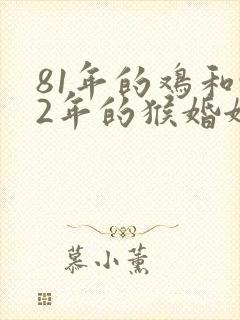 81年的鸡和
2年的猴婚
慕小薰